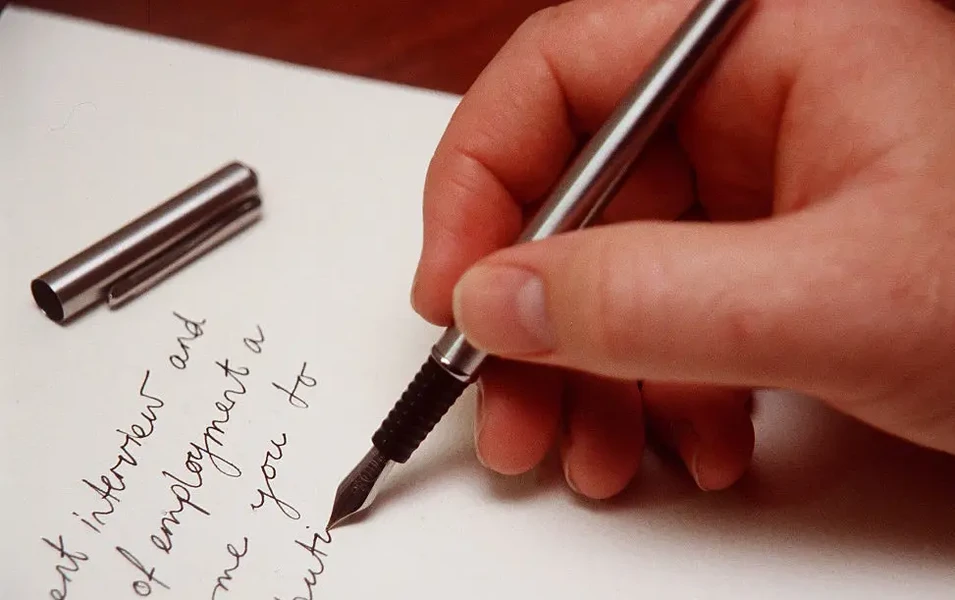 ent interview and
of employment a
me you to
uti